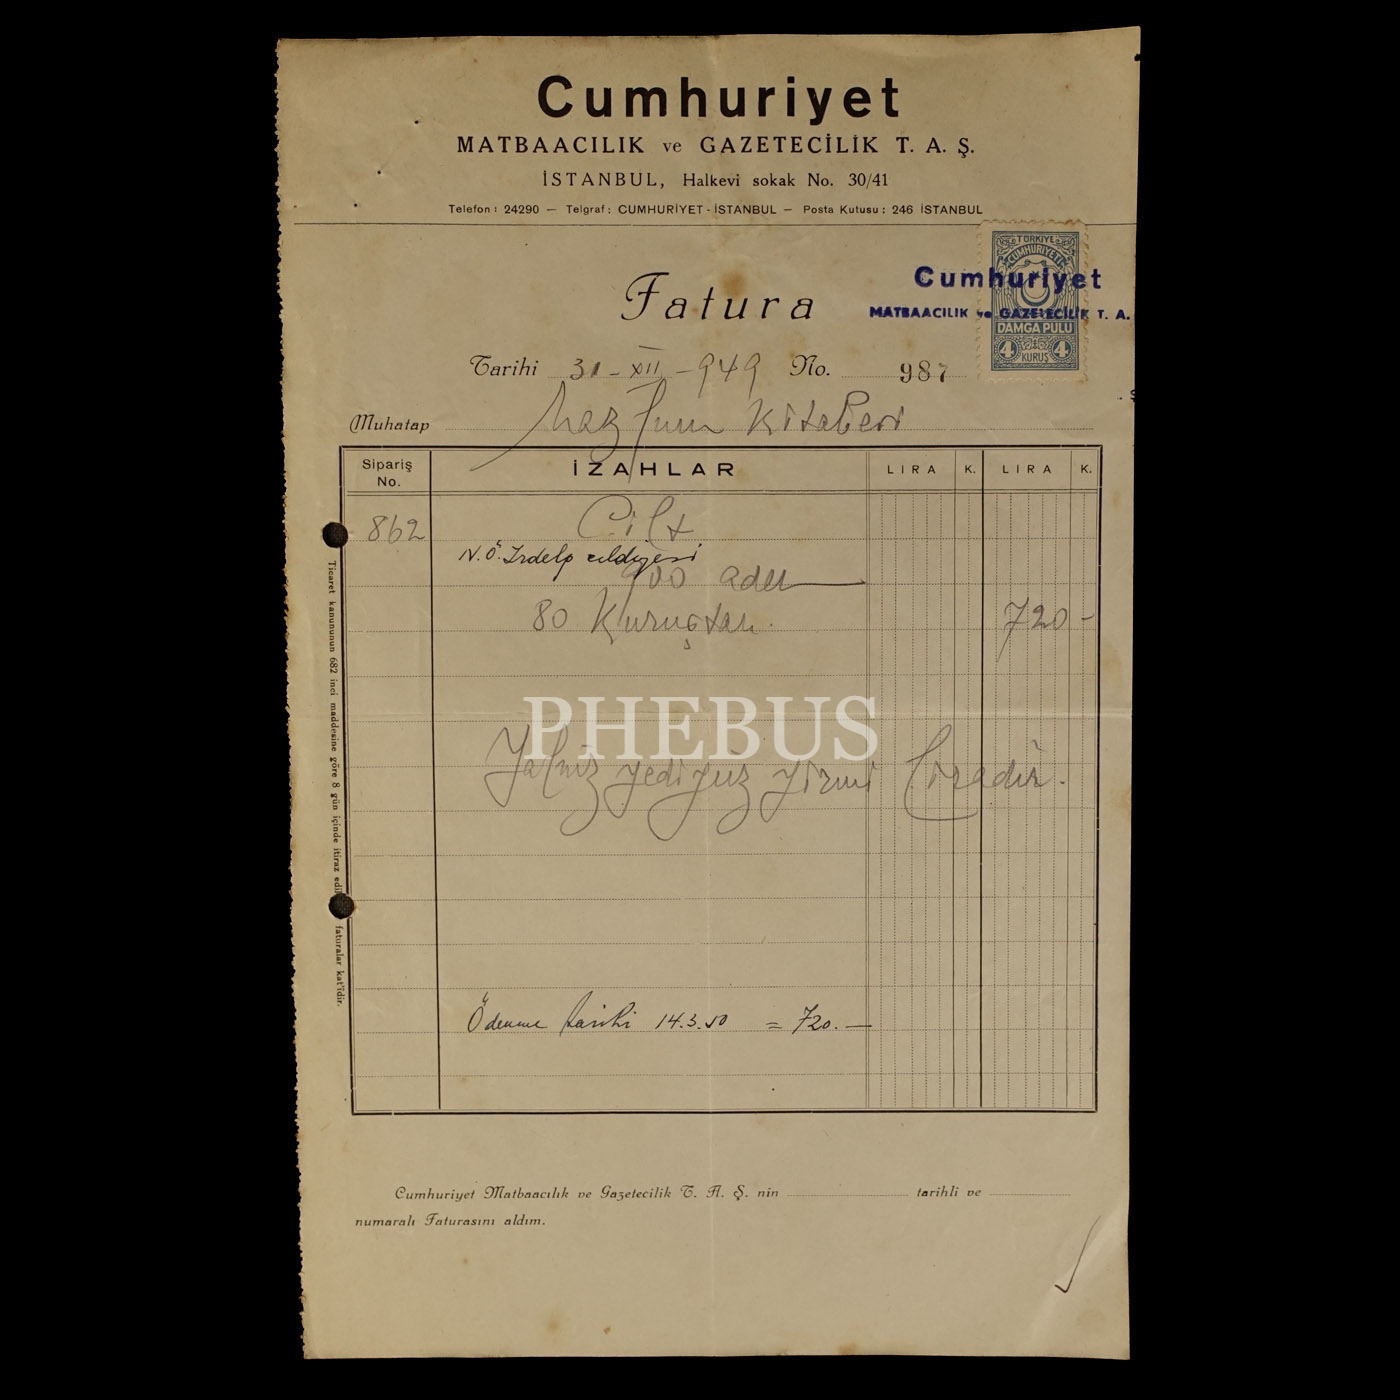 Cumhuriyet
MATBAACILIK ve GAZETECİLİK T. A. Ş.
İSTANBUL, Halkevi sokak No. 30/41
Telefon: 24290 — Telgraf: CUMHURİYET - İSTANBUL — Posta Kutusu: 246 İSTANBUL
TÜRKİYE
CUMHURİYETİ
Cumhuriyet
MATBAACILIK ve GAZETECİLİK T. A.
DAMGA PULU
4 KURUŞ 4
Fatura
Tarihi 31-XII-949 No. 987
Muhatap Kitabevi
Sipariş No. İZAHLAR LIRA K. LIRA K.
862 Cilt
N.Ö.
900 adet
80 Kuruştan. 720 -
PHEBUS
Yalnız yediyüz yirmi liradır.
Ticaret kanununun 682 inci maddesine göre 8 gün içinde itiraz faturalar kat'îdir.
Ödenme tarihi 14.3.50 = 720.—
Cumhuriyet Matbaacılık ve Gazetecilik T. A. Ş. nin tarihli ve
numaralı Faturasını aldım.